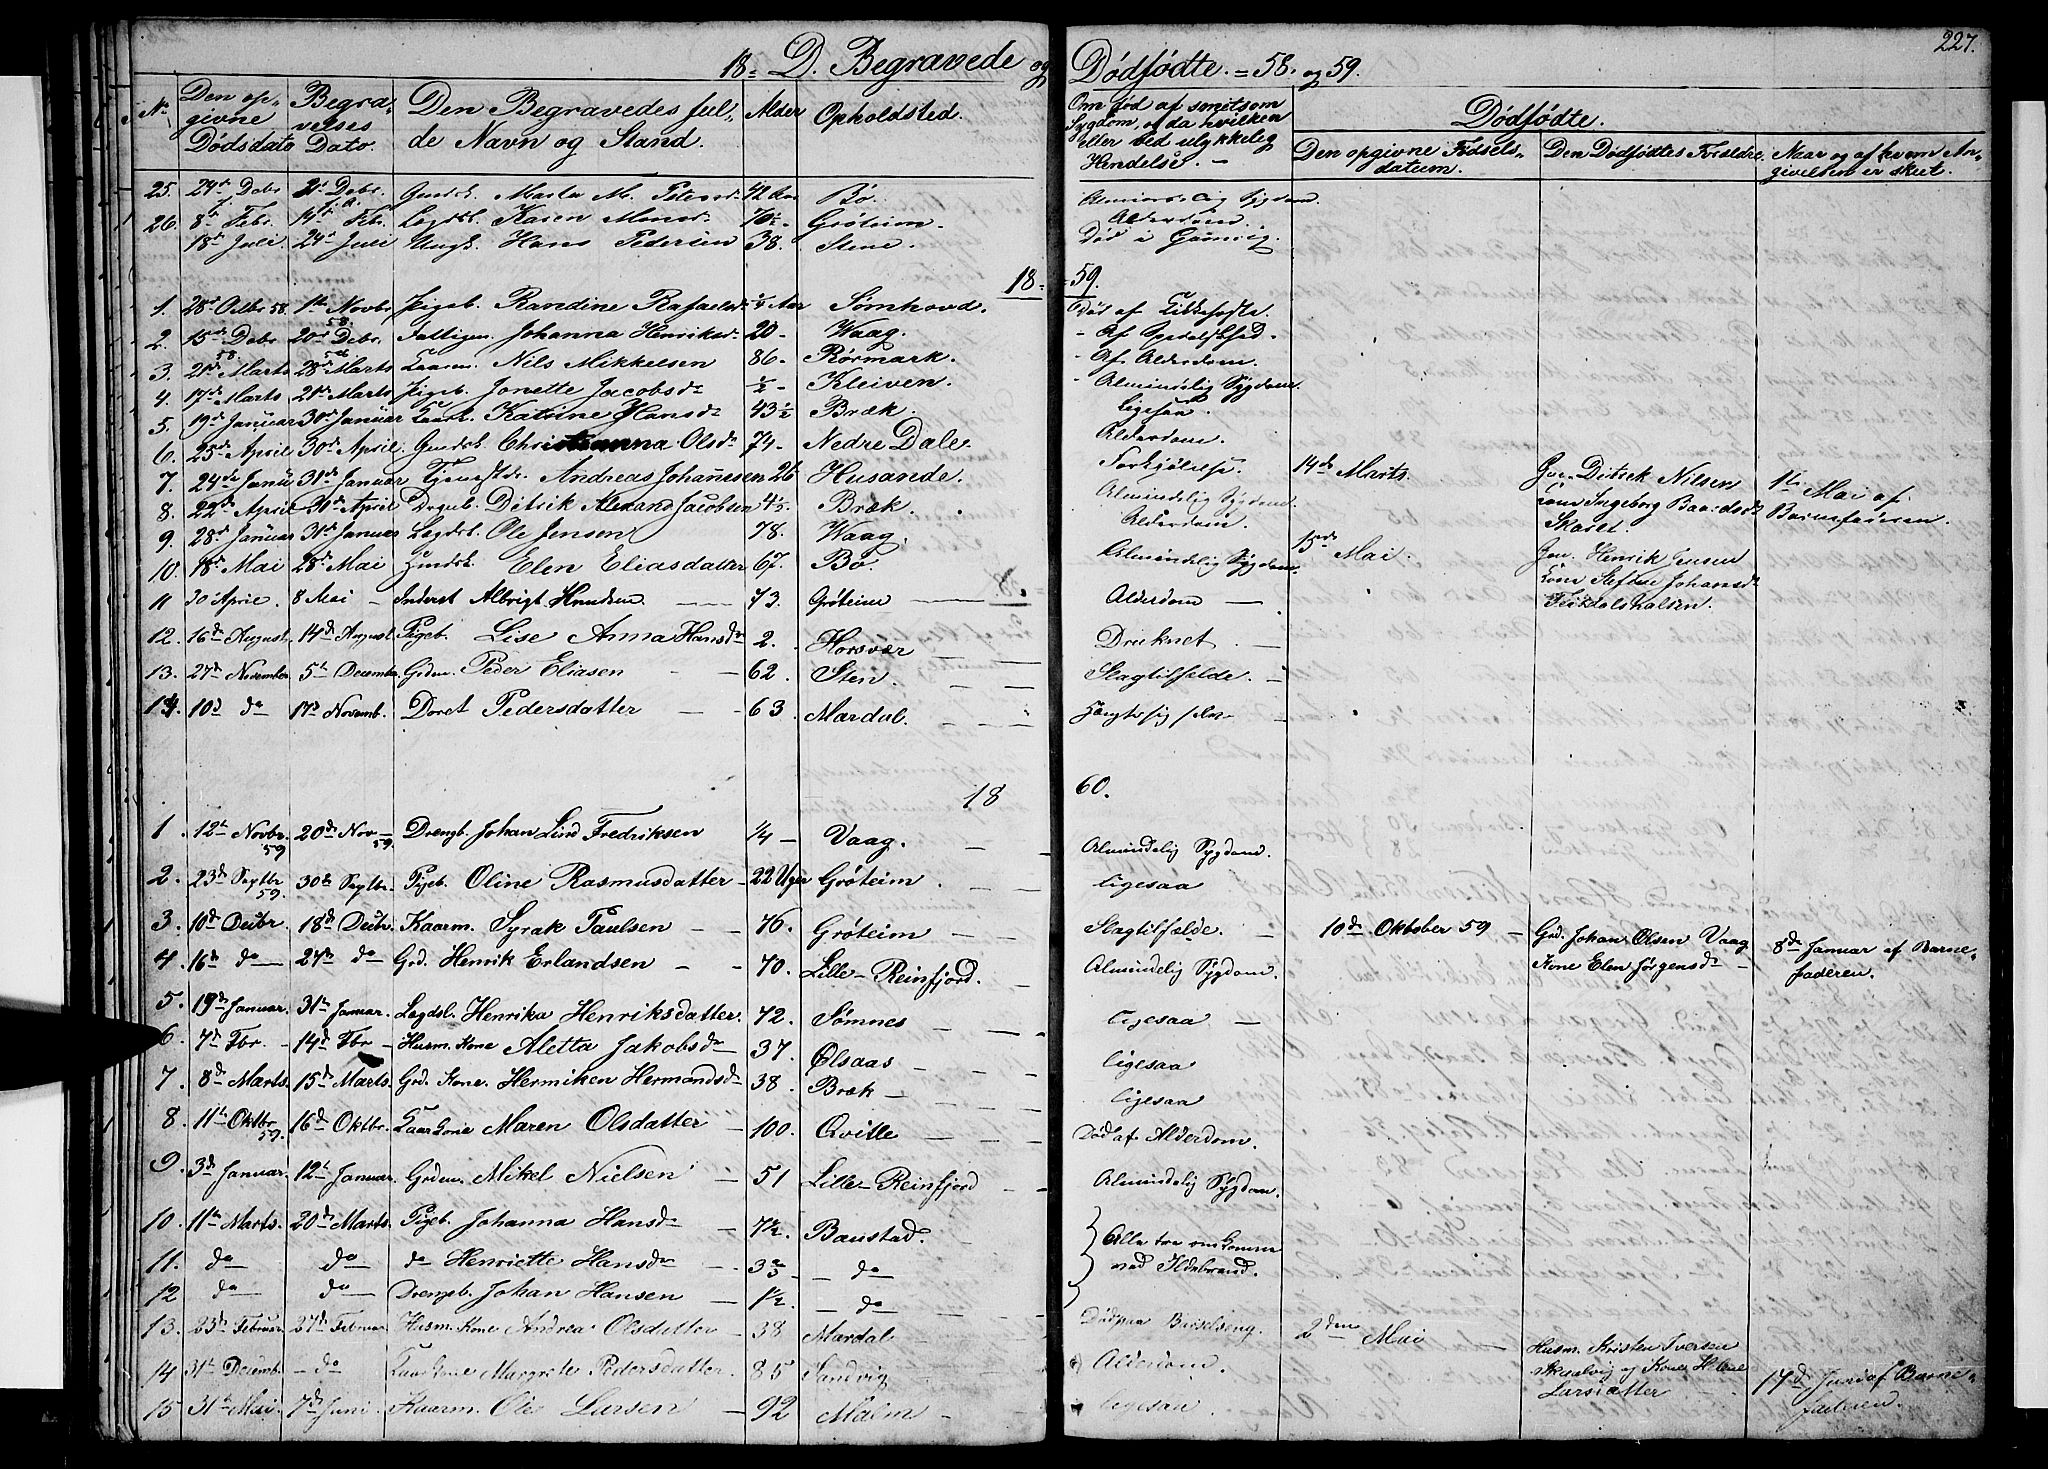 227.
18= D. Begravede og Dödfödte. =58. og 59.
No Den opgivne Dødsdato Begravelses Dato. Den Begravedes fulde Navn og Stand. Alder Opholdsted.
Om død af smitsom Sygdom, og da hvilken eller ved ulykkelig Hendelse. —
Dödfödte.
Den opgivne Födselsdatum. Den Dödfödtes Forældre Naar og af hvem Angivelsen er skeet.
25. 29de Debr. Debr. Marta M. Petersd 42 Bö. Sygdom.
26. 8de Febr. 14de Feb. Legdsl. Karen Monsd 70½- Gröteim. Alderdom.
18de Juli. 24de Juli Ungk. Hans Pedersen 38. Stene. Död i
18=59.
1. 28de Octbr 58. 1ste Novbr. 58. Pigeb. Randine Rafaelsd ¼ Aar Sömhovd. Död af Kikhoste.
2. 15de Debr. 58. 20de Debr. 58 Fattigm. Johanna Henriksd 20- Waag. - Af Spedalskhed.
3. 21de Marts 28de Marts Kaarm. Nils Mikkelsen 86. Rörmark. - Af Alderdom.
4. 17de Marts 21de Marts Pigeb. Jonette Jacobsdr ½- Kleiven. - Almindelig Sygdom.
5. 19de Januar 30de Januar Katrine Hansdr 43½ Bræk. ligesaa.
6. 25de April 30de April. Christianna Olsdr 74- Nedre Dale. Alderdom.
7. 24de Janu 31de Januar Tjenestdr. Andreas Johannssen 26 Husande. Forkjölelse. 14de Marts. Ditrik Nilsen Kone Ingeborg Baardsdr Skaret. 1ste Mai af Barnefaderen.
8. 22de April 30de April Drgeb. Ditrik Alexand Jacobsen 4½. Bræk. Almindelig Sygdom.
9. 28de Januar 31de Januar Legdsl. Ole Jensen 78. Waag. Alderdom.
10. 18de Mai 28de Mai Elen Eliasdatter 67. Bö. Almindelig Sygdom. 15de Mai. Henrik Jensen Kone Stefine Johansdr
11 30 April. 8 Mai - Inderst Albrigt Knudsen 73. Gröteim — Alderdom —
12. 16de August. 14de August. Pigeb. Lise Anna Hansdr 2. Horsvær — Druknet. —
13. 27de November. 5te Decembr Grdm. Peder Eliasen — 62. Sten. — — Slagtilfelde. —
14. 10de do 17de Novemb. Doret Pedersdatter — 63. Mardal. —
1860.
1. 12te Novbr. 59 20de Nov 59 Drengb. Johan Lind Fredriksen ¼ — Vaag. — Almindelig Sygdom.
2. 23de Septbr 59. 30te Septbr. Pigeb. Oline Rasmusdatter — 22 Uger Gröteim. — ligesaa
3. 10de Decbr 18de Decbr. Kaarm. Syrak Paulsen — — 76. Gröteim — — Slagtilfelde. — 10de Oktober 59 — Grd. Johan Olsen Vaag Kone Elen Jörgensdr — 8de Januar af Barnefaderen.
4. 16de do — 27de do Grd. Henrik Erlandsen — — 70. Lille-Reinfjord. — Almindelig Sygdom.
5. 19de Januar. 31te Januar. Legdsl. Henrika Henriksdatter. 72. Sömnes — — ligesaa —
6. 7de Fbr. - 14de Fbr - Husm. Kone Aletta Jakobsdr — 37. Ølsaas — — ligesaa
7. 8de Marts. 15de Marts. Grd. Kone. Hermiken Hermandsdr 38. Bræk — — ligesaa
8. 11te Oktbr 59. 16de Oktbr. Kaar Kone Maren Olsdatter — 100. Qville — — Död af Alderdom.
9. 3de Januar. 12te Januar. Grdm. Mikel Nielsen — 51 Lille-Reinfjord — — Almindelig Sygdom.
10. 11te Marts. 20de Marts. Pigeb. Johanna Hansdr — 7½. Baustad. — Alle tre omkomne ved Ildebrand.
11. do do do Henriette Hansdr — 3⅔ — do
12 do do Drengb. Johan Hansen — 1½. — do
13. 23de Februar 27de Februar. Husm. Kone Andrea Olsdatter — 38 Mardal — Död paa Barselseng. 2den Mai — Husm. Kristen Iversen og Kone Larsdatter 17de Juni af Barnefaderen.
14 31te Decemb. - do Kaar Kone Margrete Pedersdatter. 85 Sandvig — Alderdom.
15 31te Mai. 7de Juni. Kaarm. Ole Larsen — 92 Malm — ligesaa.